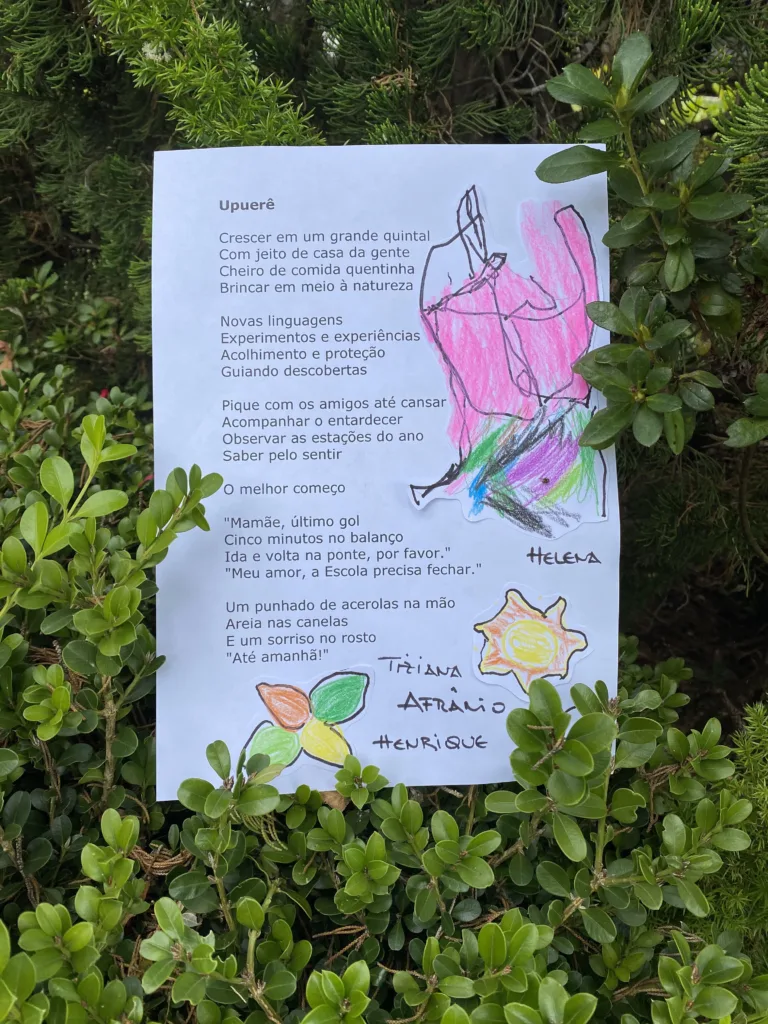 Upuerê
Crescer em um grande quintal
Com jeito de casa da gente
Cheiro de comida quentinha
Brincar em meio à natureza
Novas linguagens
Experimentos e experiências
Acolhimento e proteção
Guiando descobertas
Pique com os amigos até cansar
Acompanhar o entardecer
Observar as estações do ano
Saber pelo sentir
O melhor começo
"Mamãe, último gol
Cinco minutos no balanço
Ida e volta na ponte, por favor."
"Meu amor, a Escola precisa fechar."
Um punhado de acerolas na mão
Areia nas canelas
E um sorriso no rosto
"Até amanhã!"
HELENA
TIZIANA
AFRÂNIO
HENRIQUE